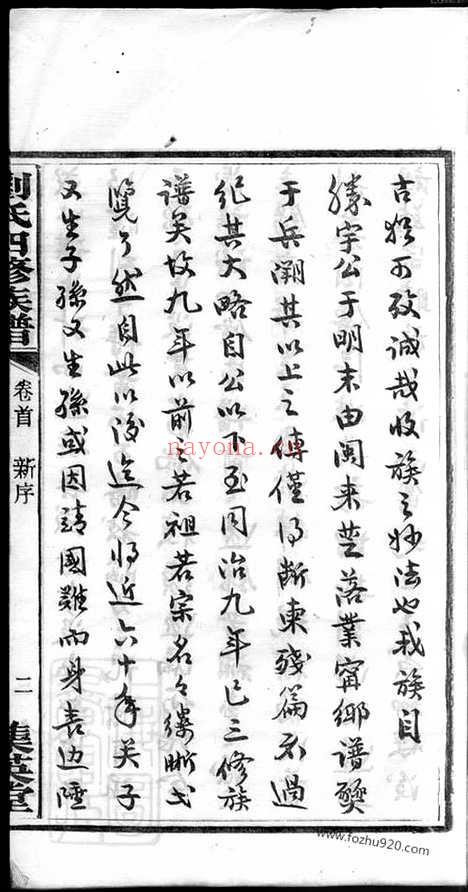 吉猶可致誠哉收族之妙法也我族自
勝宇公于明末由閩来楚落業甯鄉譜燬
于兵溯其以上之傳僅得斷柬残篇不過
纪其大略自公以下至同治九年已三修族
谱矣故九年以前若祖若宗名々缕晰弋
覽了然自此以後迄今将近六十年矣子
又生子孫又生孫或因靖國難而身喪边陲
劉氏四修族譜
卷首 新序
二
集英堂
nayona.cn
www.fozhu920.com